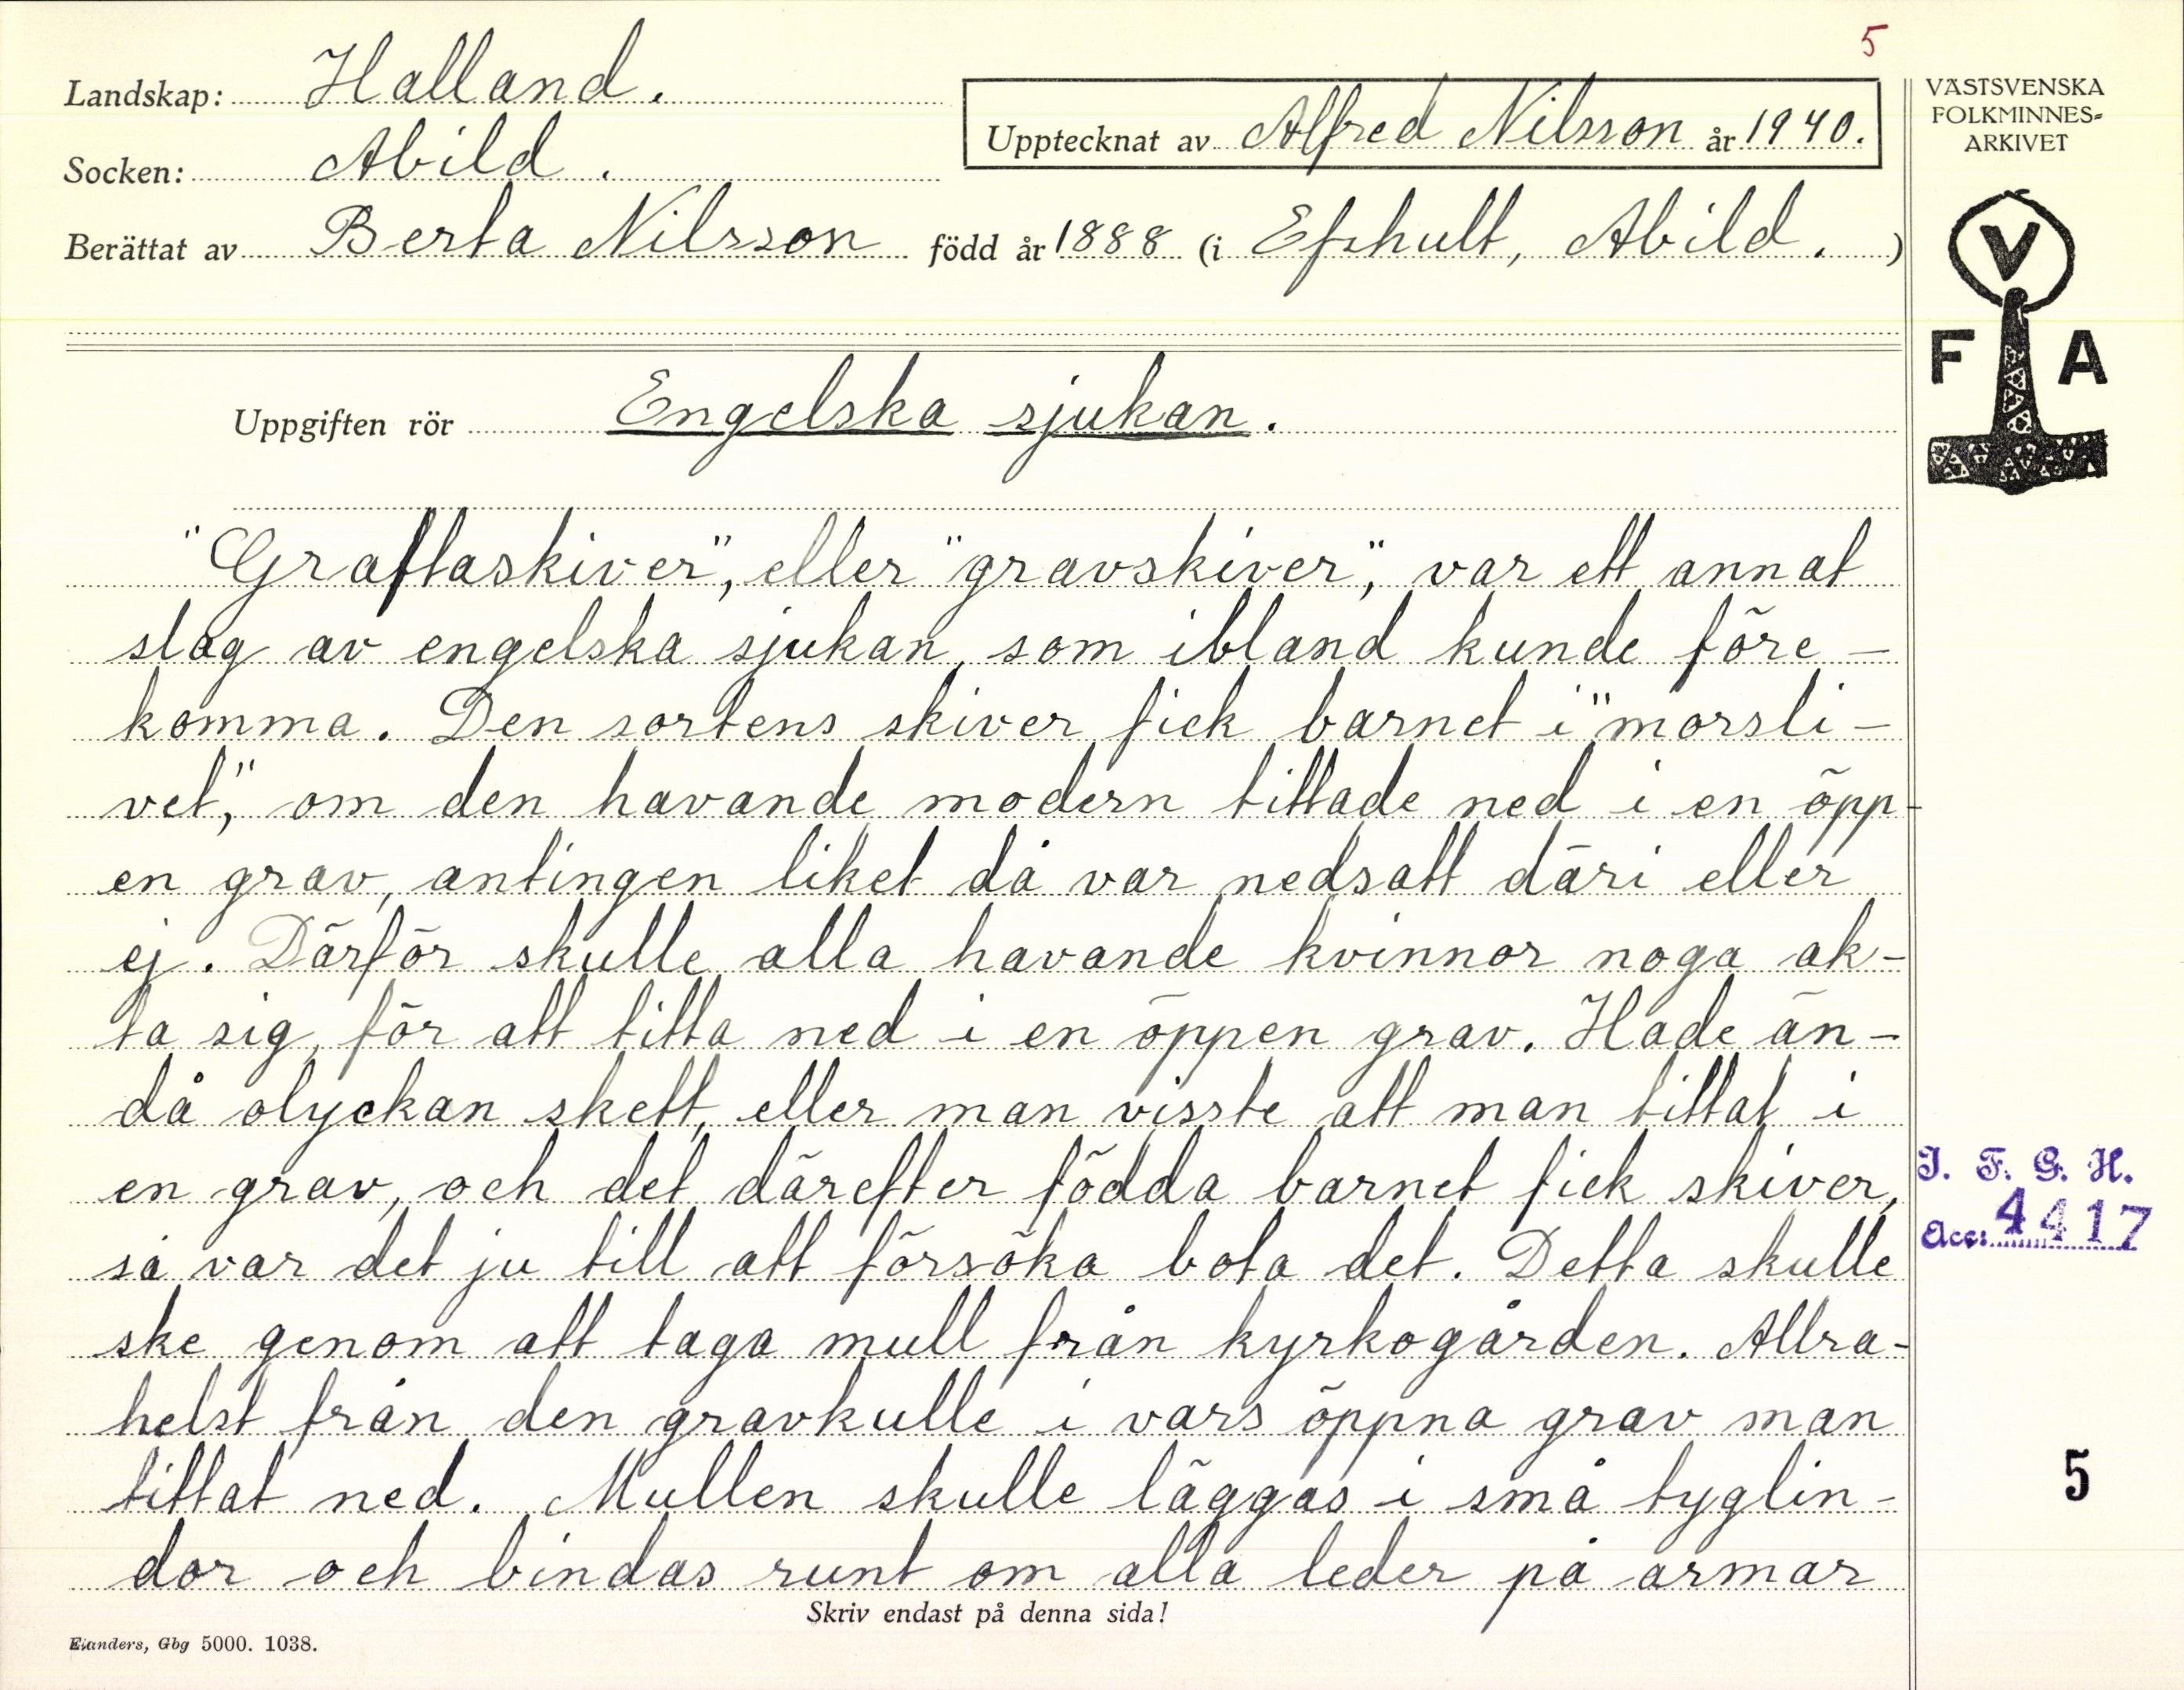 5
Landskap: Halland.
Upptecknat av Alfred Nilsson år 1940.
Socken: Abild.
Berättat av Berta Nilsson född år 1888 (i Efshult, Abild.)
VÄSTSVENSKA
FOLKMINNES-
ARKIVET
V
F A
Uppgiften rör Engelska sjukan.
"Graftaskiver", eller "gravskiver", var ett annat
slag av engelska sjukan, som ibland kunde före-
komma. Den sortens skiver fick barnet i "morsli-
vet", om den havande modern tittade ned i en öpp-
en grav, antingen liket då var nedsatt däri eller
ej. Därför skulle alla havande kvinnor noga ak-
ta sig, för att titta ned i en öppen grav. Hade än-
då olyckan skett, eller man visste att man tittat i
en grav, och det därefter födda barnet fick skiver,
så var det ju till att försöka bota det. Detta skulle
ske genom att taga mull från kyrkogården. Allra-
helst från den gravkulle i vars öppna grav man
tittat ned. Mullen skulle läggas i små tyglin-
dor och bindas runt om alla leder på armar
I. F. G. H.
Acc: 4417
5
Skriv endast på denna sida!
Elanders, Gbg 5000. 1038.